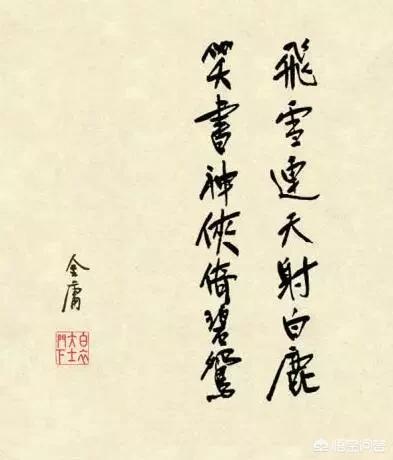 飛雪連天射白鹿
笑書神俠倚碧鴛
金庸
白衣
大士
門下
悟空问答